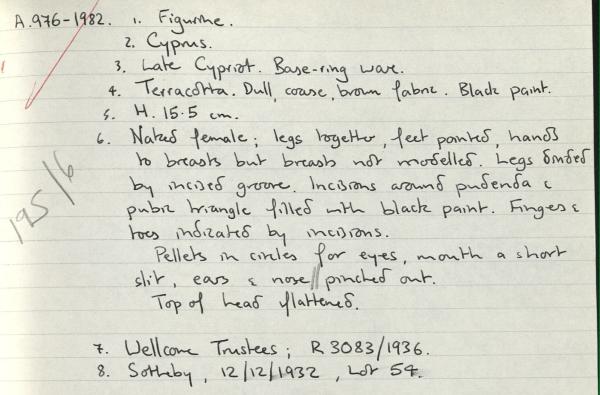 A.976-1982. 1. Figurine.
2. Cyprus.
3. Late Cypriot. Base-ring ware.
4. Terracotta. Dull, coarse, brown fabric. Black paint.
5. H. 15.5 cm.
6. Naked female; legs together, feet pointed, hands
to breasts but breasts not modelled. Legs divided
by incised groove. Incisions around pudenda &
pubic triangle filled with black paint. Fingers &
toes indicated by incisions.
Pellets in circles for eyes, mouth a short
slit, ears & nose pinched out.
Top of head flattened.
195/6
7. Wellcome Trustees; R 3083/1936.
8. Sotheby, 12/12/1932, Lot 54.